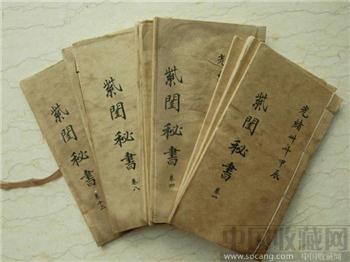 光緒卅年甲辰
紫閨秘書 卷一
紫閨秘書 卷四
紫閨秘書 卷八
紫閨秘書
中国收藏网
www.socang.com 中国收藏网